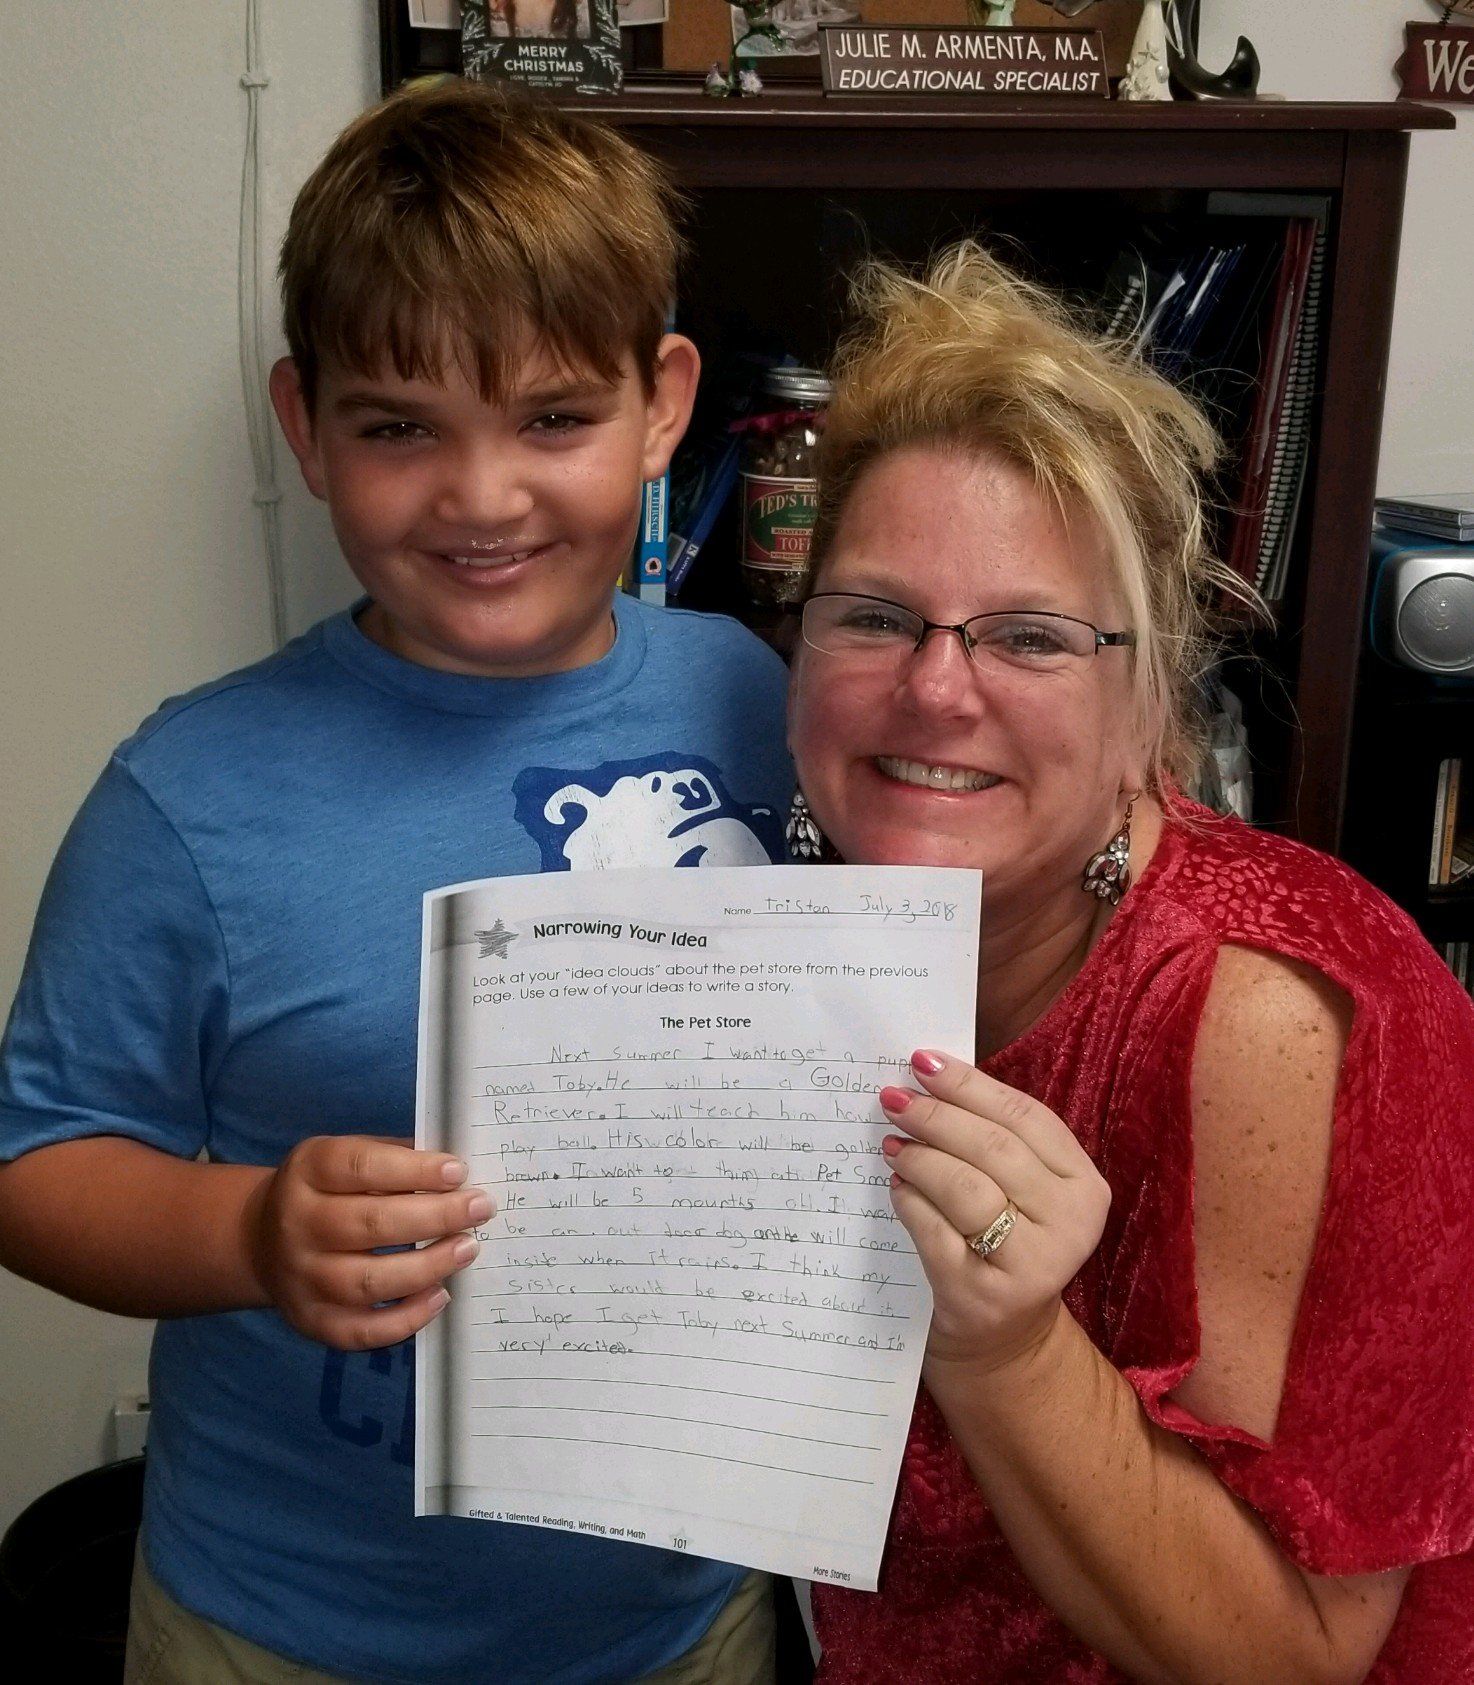 MERRY
CHRISTMAS
JULIE M. ARMENTA, M.A.
EDUCATIONAL SPECIALIST
We
TED'S
TOFF
Name Tristan July 3, 2018
Narrowing Your Idea
Look at your "idea clouds" about the pet store from the previous
page. Use a few of your ideas to write a story.
The Pet Store
Next summer I want to get a pupp
named Toby. He will be a Golden
Retriever. I will teach him how
play ball. His color will be golden
brown. I want to him at Pet Sma
He will be 5 mounths old. I wan
to be an out door dog and he will come
inside when it rains. I think my
sister would be excited about it.
I hope I get Toby next Summer and I'm
very excited.
Gifted & Talented Reading, Writing, and Math
101
More Stories